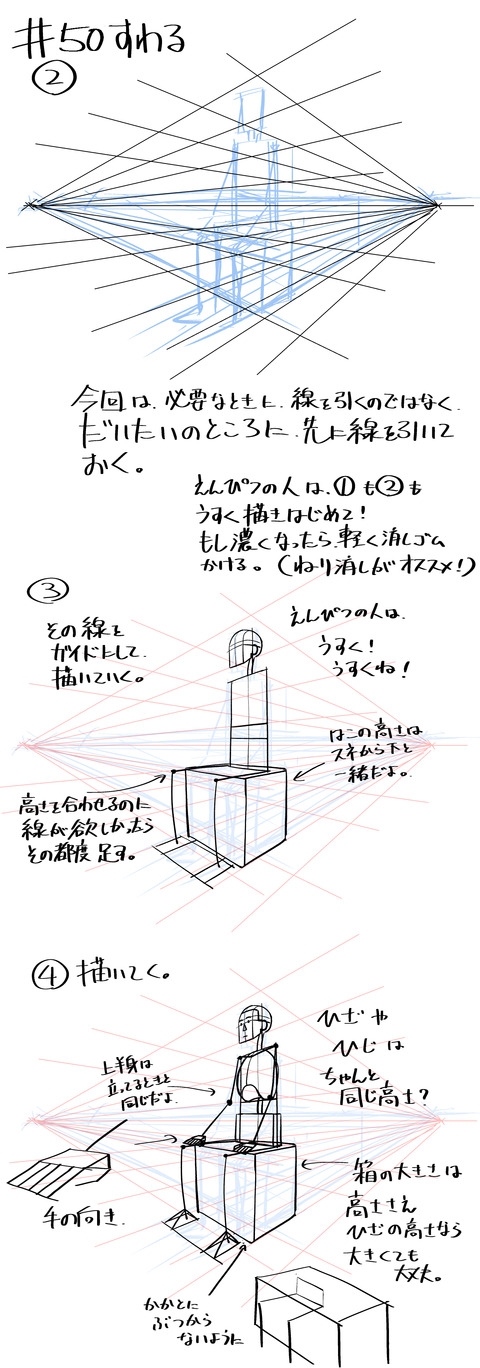 #50すわる
②
今回は、必要なときに、線を引くのではなく、
だいたいのところに、先に線を引いて
おく。
えんぴつの人は、①も②も
うすく描きはじめて!
もし濃くなったら、軽く消しゴム
かける。(ねり消しがオススメ!)
③
その線を
ガイドにして、
描いていく。
えんぴつの人は、
うすく!
うすくね!
はこの高さは
スネから下と
一緒だよ。
高さを合わせるのに
線が欲しかったら
その都度足す。
④描いてく。
上半身は
立ってるときと
同じだよ
ひざや
ひじは
ちゃんと
同じ高さ?
手の向き。
箱の大きさは
高ささえ
ひざの高さなら
大きくても
大丈夫。
かかとに
ぶつから
ないように